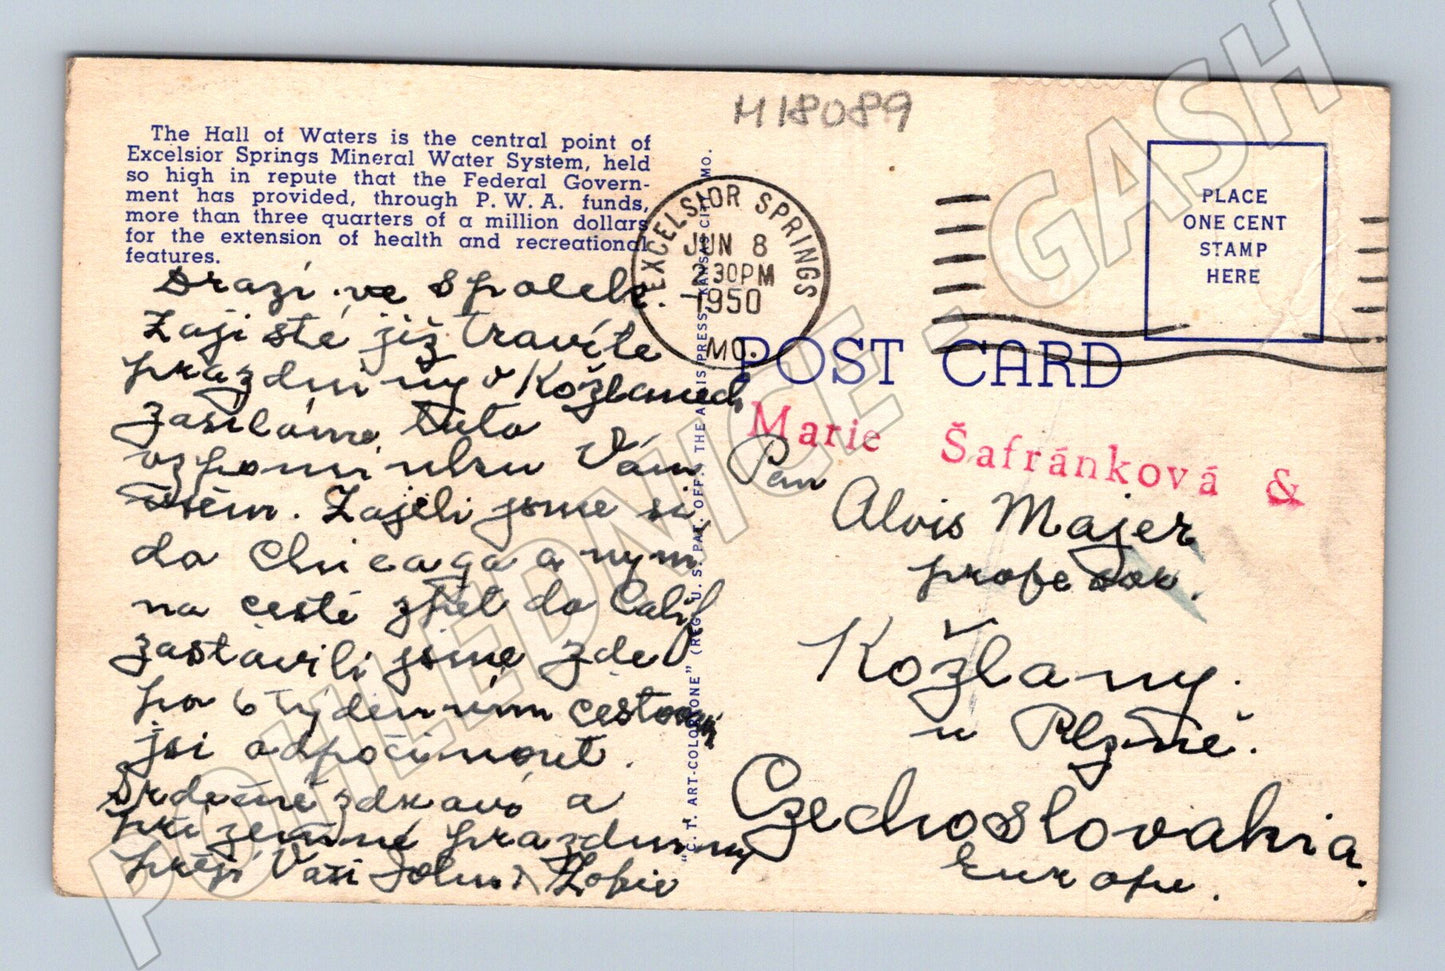 H18089
The Hall of Waters is the central point of
Excelsior Springs Mineral Water System, held
so high in repute that the Federal Govern-
ment has provided, through P. W. A. funds,
more than three quarters of a million dollars
for the extension of health and recreational
features.
EXCELSIOR SPRINGS
JUN 8
2 30 PM
1950
MO.
PLACE
ONE CENT
STAMP
HERE
POST CARD
Marie Šafránková &
Drazí ve spolek.
Zajisté již travíte
prazdniny v Kožlanech
zasíláme tuto
vzpomínku Vám
všem. Zajeli jsme si
do Chicaga a nyní
na cestě zpět do Calif
zastavili jsme zde
po 6 týdenním cestov
jsi odpočinout.
Srdečné zdraví a
příjemné prazdniny
přejí Vaši John & Žofie
Pan
Alois Majer
profesor.
Kožlany.
u Plzně.
Czechoslovakia
Europe.
"C. T. ART-COLORTONE" (REG. U. S. PAT. OFF.) THE ARIS PRESS, KANSAS CITY, MO.
POHLEDNICE - GASH